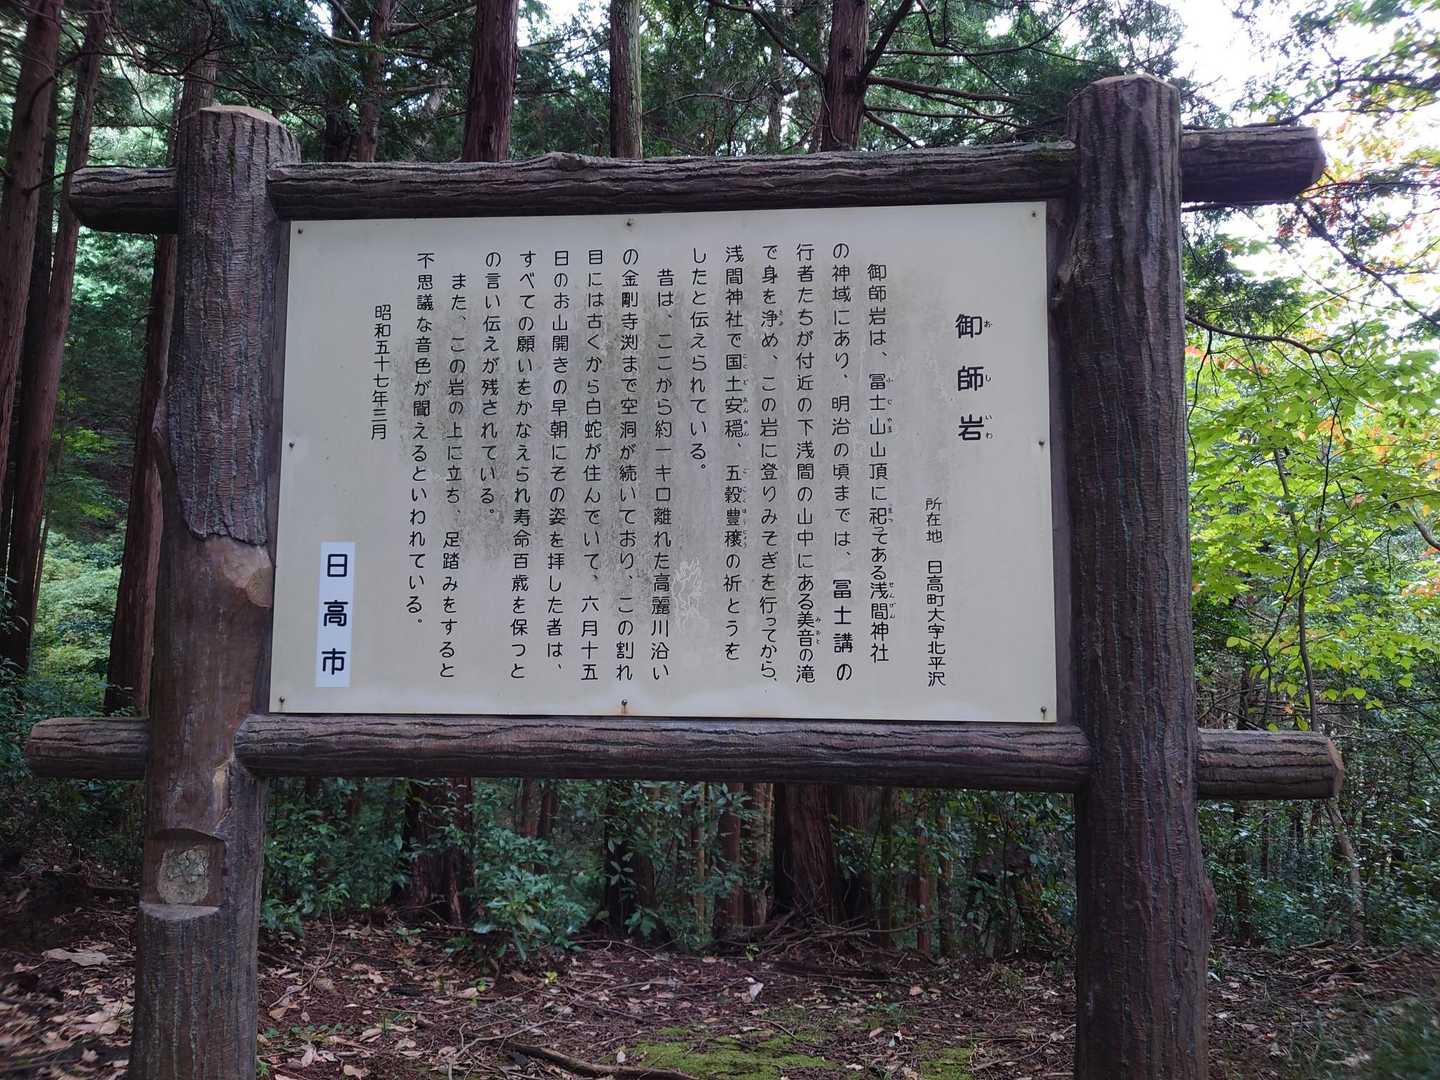 御師岩
所在地　日高町大字北平沢
御師岩は、冨士山山頂に祀ってある浅間神社
の神域にあり、明治の頃までは、冨士講の
行者たちが付近の下浅間の山中にある美音の滝
で身を浄め、この岩に登りみそぎを行ってから、
浅間神社で国土安穏、五穀豊穣の祈とうを
したと伝えられている。
昔は、ここから約一キロ離れた高麗川沿い
の金剛寺渕まで空洞が続いており、この割れ
目には古くから白蛇が住んでいて、六月十五
日のお山開きの早朝にその姿を拝した者は、
すべての願いをかなえられ寿命百歳を保つと
の言い伝えが残されている。
また、この岩の上に立ち、足踏みをすると
不思議な音色が聞えるといわれている。
昭和五十七年三月
日高市